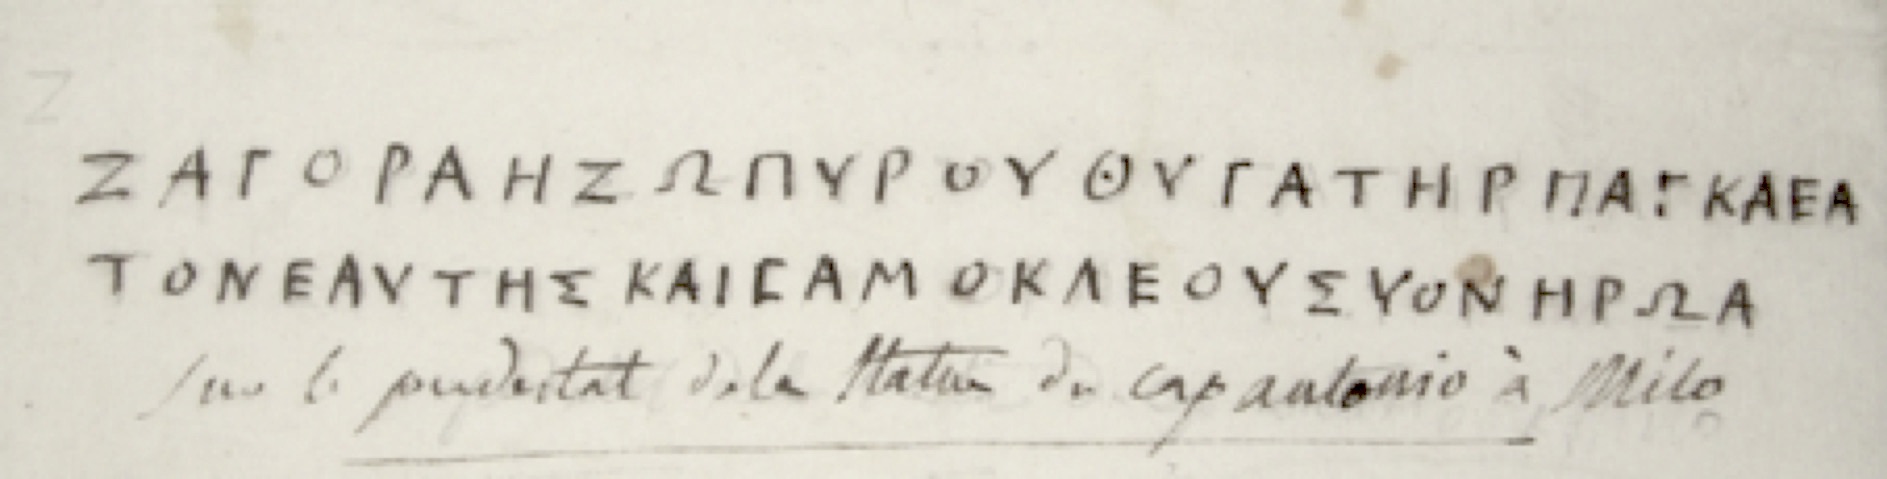 ΖΑΓΟΡΑΗΖΩΠΥΡΟΥΘΥΓΑΤΗΡΠΑΓΚΑΕΑ
ΤΟΝΕΑΥΤΗΣΚΑΙΣΑΜΟΚΛΕΟΥΣΥΟΝΗΡΩΑ
sur le piedestat de la Statue du cap antonio à Milo